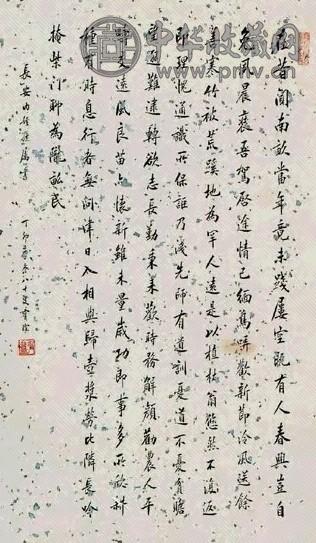 中华收藏网
在昔聞南畝當年竟未踐屢空既有人春興豈自
免夙晨裝吾駕啓途情已緬鳥哢歡新節泠風送餘
善寒竹被荒蹊地為罕人遠是以植杖翁悠然不復返
即理愧通識所保詎乃淺先師有遺訓憂道不憂貧瞻
望邈難逮轉欲志長勤秉耒歡時務解顏勸農人平
疇交遠風良苗亦懷新雖未量歲功即事多所欣耕
種有時息行者無問津日入相與歸壺漿勞比隣長吟
掩柴門聊為隴畝民
長安
丁卯